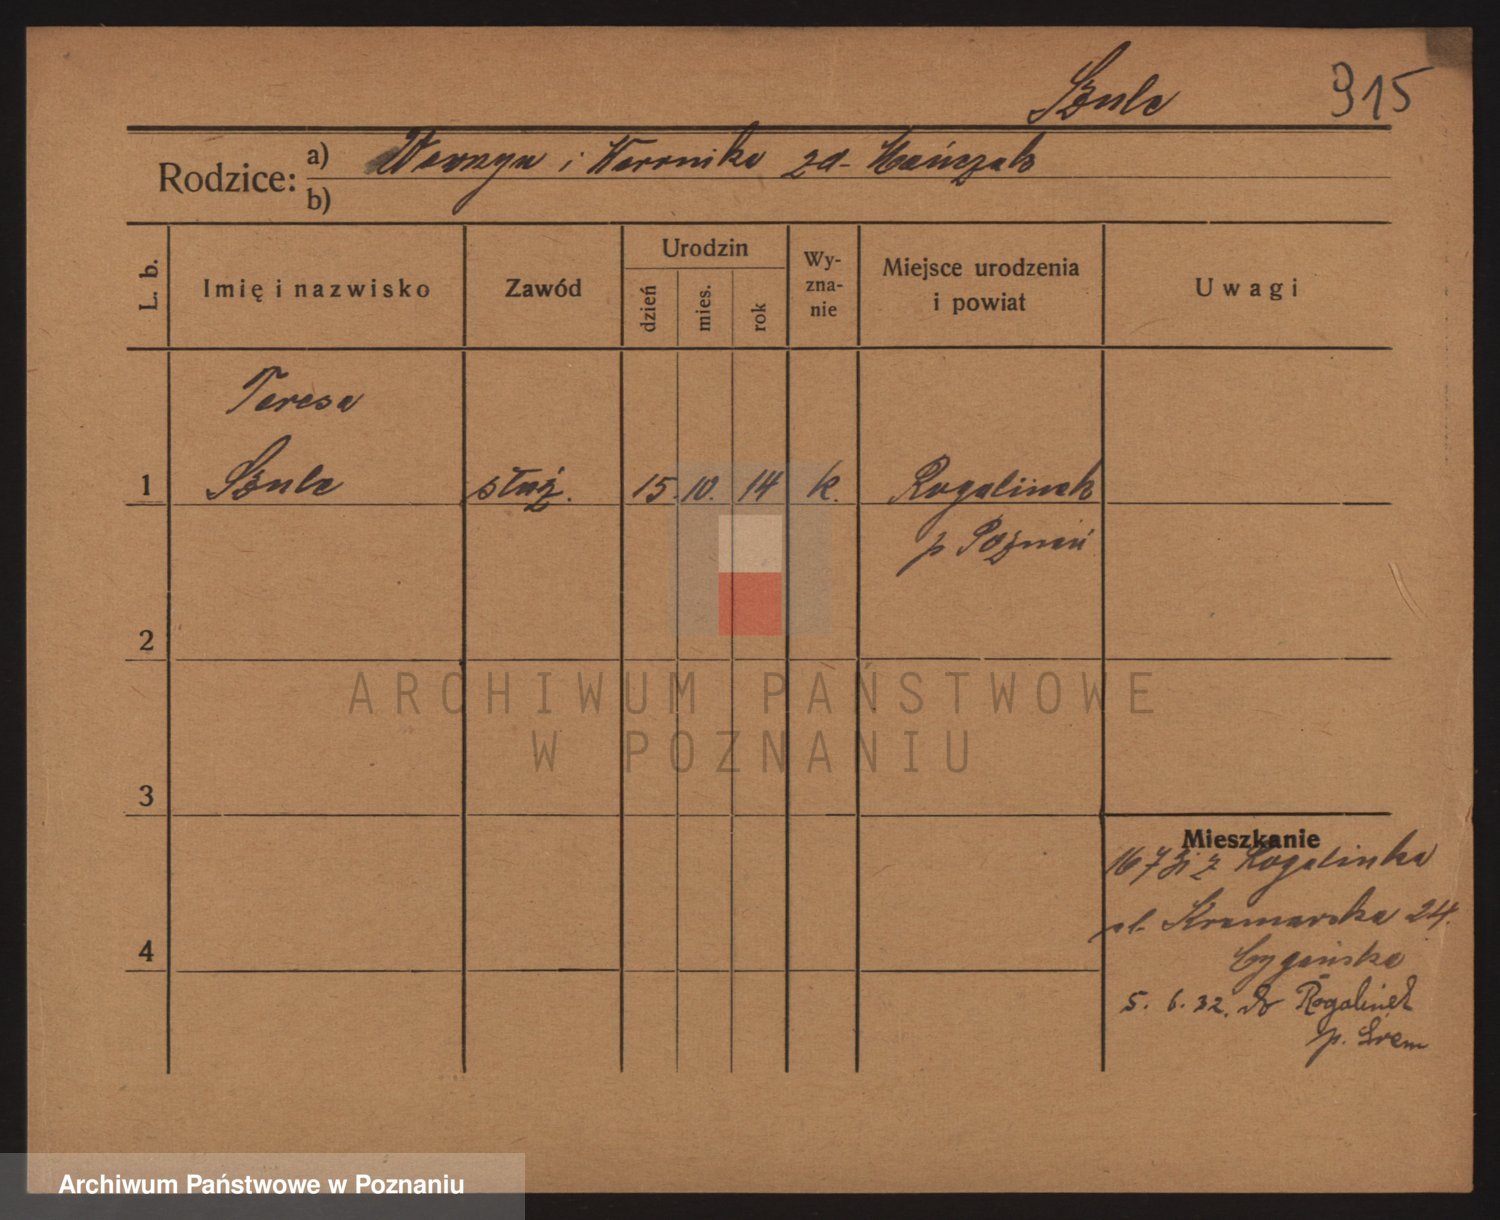 Szulc 915
Rodzice: a) Wawrzyn i Weronika zd. Mańczak
b)
L. b.
Imię i nazwisko
Zawód
Urodzin
dzień
mies.
rok
Wy-
zna-
nie
Miejsce urodzenia
i powiat
Uwagi
Teresa
1 Szulc służ. 15. 10. 14 k. Rogalinek
p. Poznań
2
3
4
Mieszkanie
16 7 31 z Rogalinka
ul. Kramarska 24.
5. 6. 32. do Rogalinek
p. Śrem
ARCHIWUM PAŃSTWOWE
W POZNANIU
Archiwum Państwowe w Poznaniu